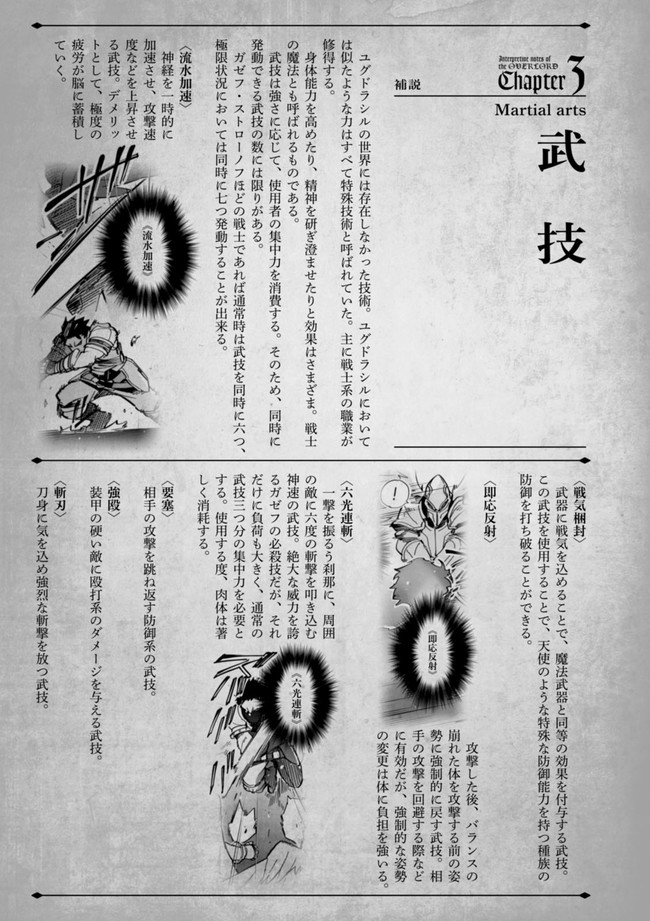 Interpretive notes of
the OVERLORD
Chapter 3
補説
Martial arts
武技
ユグドラシルの世界には存在しなかった技術。ユグドラシルにおいて
は似たような力はすべて特殊技術と呼ばれていた。主に戦士系の職業が
修得する。
身体能力を高めたり、精神を研ぎ澄ませたりと効果はさまざま。戦士
の魔法とも呼ばれるものである。
武技は強さに応じて、使用者の集中力を消費する。そのため、同時に
発動できる武技の数には限りがある。
ガゼフ・ストローノフほどの戦士であれば通常時は武技を同時に六つ、
極限状況においては同時に七つ発動することが出来る。
〈流水加速〉
神経を一時的に
加速させ、攻撃速
度などを上昇させ
る武技。デメリッ
トとして、極度の
疲労が脳に蓄積し
ていく。
《流水加速》
〈戦気梱封〉
武器に戦気を込めることで、魔法武器と同等の効果を付与する武技。
この武技を使用することで、天使のような特殊な防御能力を持つ種族の
防御を打ち破ることができる。
〈即応反射〉
!
《即応反射》
攻撃した後、バランスの
崩れた体を攻撃する前の姿
勢に強制的に戻す武技。相
手の攻撃を回避する際など
に有効だが、強制的な姿勢
の変更は体に負担を強いる。
〈六光連斬〉
一撃を振るう刹那に、周囲
の敵に六度の斬撃を叩き込む
神速の武技。絶大な威力を誇
るガゼフの必殺技だが、それ
だけに負荷も大きく、通常の
武技三つ分の集中力を必要と
する。使用する度、肉体は著
しく消耗する。
《六光連斬》
〈要塞〉
相手の攻撃を跳ね返す防御系の武技。
〈強殴〉
装甲の硬い敵に殴打系のダメージを与える武技。
〈斬刃〉
刀身に気を込め強烈な斬撃を放つ武技。